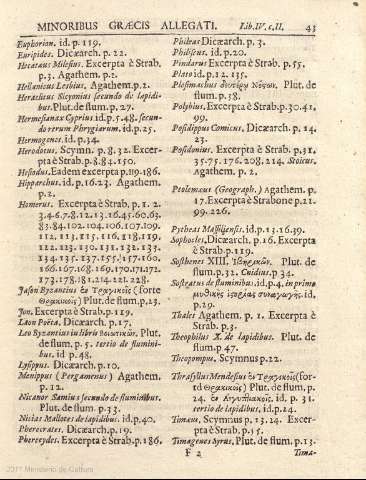 MINORIBUS GRÆCIS ALLEGATI. Lib. IV. c. II. 43
Euphorion. id. p. 119.
Euripides. Dicæarch. p. 22.
Hecatæus Milesius. Excerpta è Strab.
p. 3. Agathem. p. 2.
Hellanicus Lesbius, Agathem. p. 2.
Heraclitus Sicyonius secundo de lapidi-
bus. Plut. de flum. p. 27.
Hermesianax Cyprius id. p. 5. 48. secun-
do rerum Phrygiarum. id. p. 25.
Hermogenes. id. p. 34.
Herodotus, Scymn. p. 8. 32. Excer-
pta è Strab. p. 8. 84. 150.
Hesiodus. Eadem excerpta p. 119. 186.
Hipparchus. id. p. 16. 23. Agathem.
p. 2.
Homerus. Excerpta è Strab. p. 1. 2.
3. 4. 6. 7. 8. 12. 13. 16. 45. 60. 63.
83. 84. 102. 104. 106. 107. 109.
112. 113. 115. 116. 118. 119.
122. 123. 130. 131. 132. 133.
134. 135. 137. 155. 157. 160.
166. 167. 168. 169. 170. 171. 172.
173. 178. 181. 214. 221. 228.
Jason Byzantius ἐν Τραγικοῖς (forte
Θρακικοῖς) Plut. de flum. p. 23.
Jon. Excerpta è Strab. p. 119.
Laon Poëta. Dicæarch. p. 17.
Leo Byzantius in libris Βοιωτικῶν, Plut.
de flum. p. 5. tertio de flumini-
bus. id p. 48.
Lysippus. Dicæarch. p. 10.
Menippus (Pergamenus) Agathem.
p. 12.
Nicanor Samius secundo de fluminibus.
Plut. de flum. p. 33.
Nicias Mallotes de lapidibus. id. p. 40.
Pherecrates. Dicæarch. p. 19.
Pherecydes. Excerpta è Strab. p. 186.
Phileas Dicæarch. p. 3.
Philiscus. id. p. 20.
Pindarus Excerpta è Strab. p. 55.
Plato id. p. 12. 135.
Plesimachus Plut. de
flum. p. 58.
Polybius. Excerpta è Strab. p. 30. 41.
99.
Posidippus Comicus, Dicæarch. p. 14.
23.
Posidonius. Excerpta è Strab. p. 31.
35. 75. 176. 208. 214. Stoicus.
Agathem. p. 2.
Ptolemæus (Geograph.) Agathem. p.
17. Excerpta è Strabone p. 21.
99. 226.
Pytheas Massiliensis. id. p. 13. 16. 39.
Sophocles. Dicæarch. p. 16. Excerpta
è Strab. p. 119.
Sosthenes XIII. Ἰβηρικῶν. Plut. de
flum. p. 32. Cnidius. p. 34.
Sostratus de fluminibus. id. p. 4. in primo
μυθικῆς ἱστορίας συναγωγῆς. id.
p. 29.
Thales Agathem. p. 1. Excerpta
è Strab. p. 3.
Theophilus X. de lapidibus. Plut. de
flum. p. 47.
Theopompus, Scymnus p. 22.
Thrasyllus Mendesius ἐν Τραγικοῖς (for-
tè Θρακικοῖς) Plut. de flum. p.
24. ἐν Αἰγυπτιακοῖς. id. p. 31.
tertio de lapidibus. id. p. 24.
Timæus, Scymnus p. 13. 24. Excer-
pta è Strab. p. 15.
Timagenes Syrus, Plut. de flum. p. 13.
F 2 Tima-
2011 Ministerio de Cultura